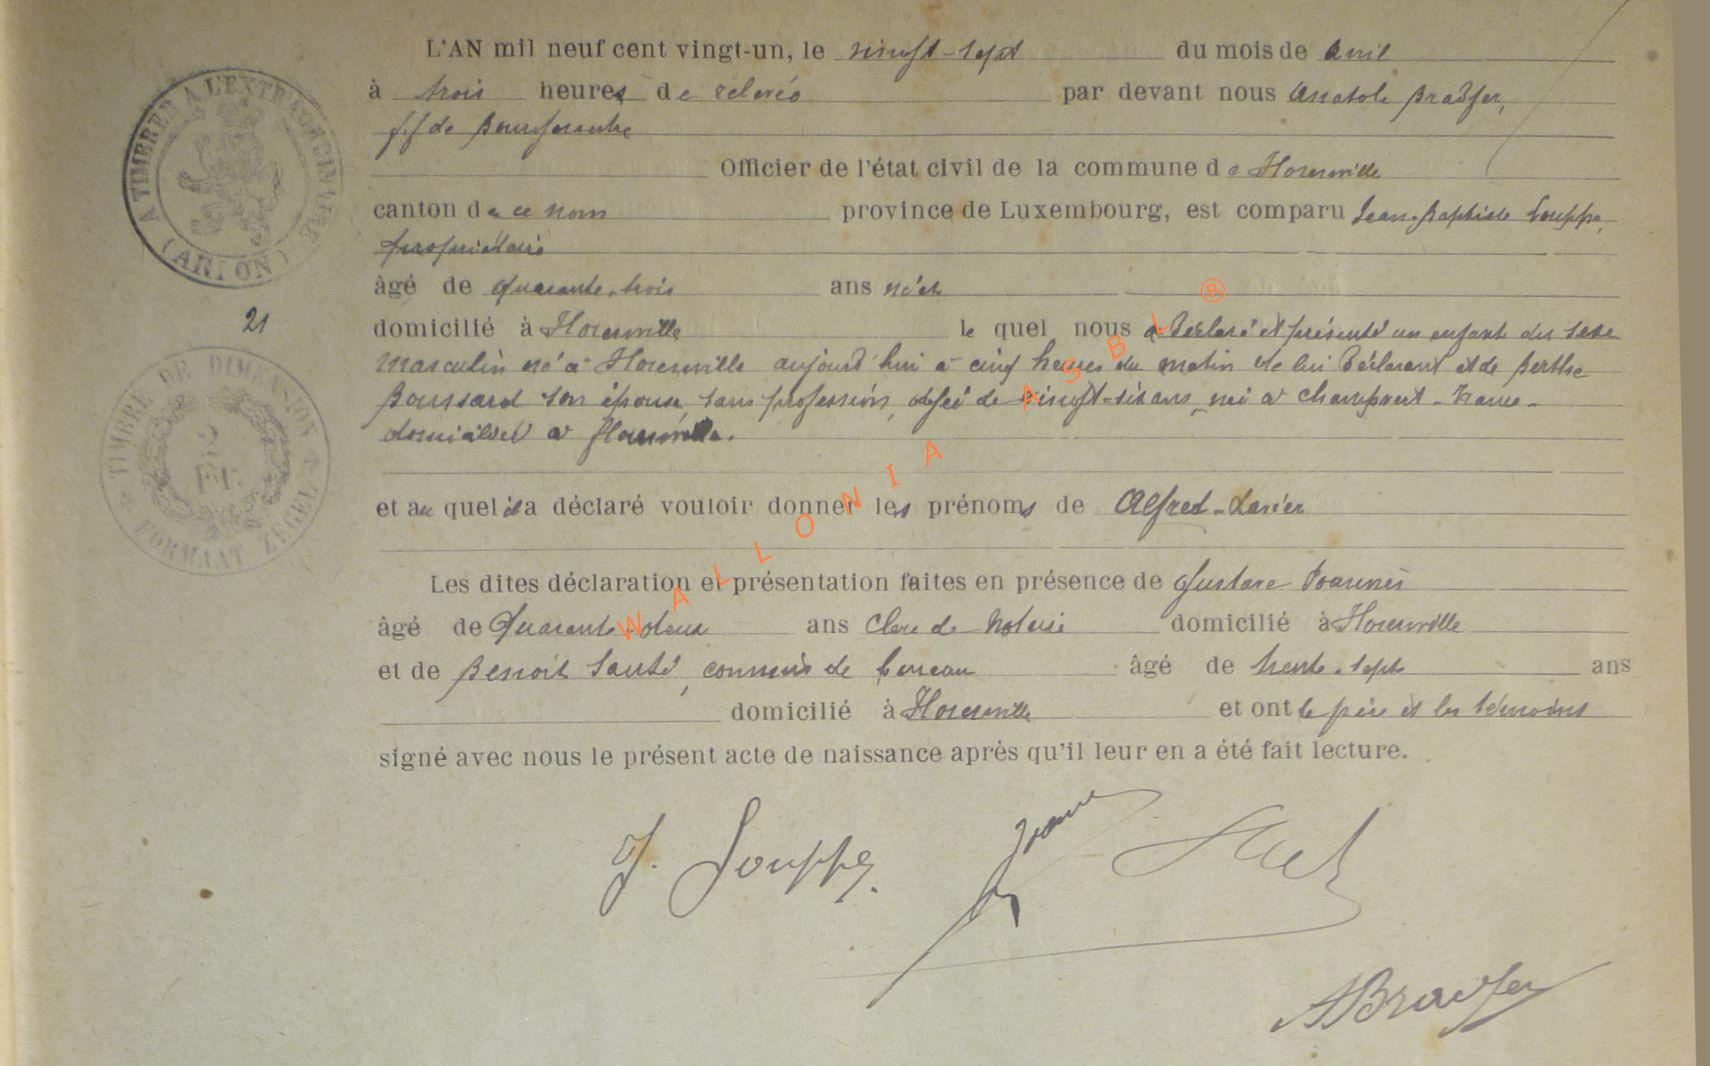 L'AN mil neuf cent vingt-un, le vingt-sept du mois de avril
à trois heures de relevée par devant nous Anatole Bradfer,
f.f de Bourgmestre
Officier de l'état civil de la commune de Florenville
canton de ce nom province de Luxembourg, est comparu Jean-Baptiste Souppe,
propriétaire
âgé de quarante-trois ans né et
domicilié à Florenville le quel nous a déclaré et présenté un enfant du sexe
masculin né à Florenville aujourd'hui à cinq heures du matin de lui déclarant et de Berthe
Boussard son épouse, sans profession, âgée de vingt-six ans, née à France-
domiciliée à Florenville.
et au quel il a déclaré vouloir donner les prénoms de Alfred-Xavier
Les dites déclaration et présentation faites en présence de Gustave
âgé de Quarante-deux ans clerc de Notaire domicilié à Florenville
et de Benoit commis de bureau âgé de trente-sept ans
domicilié à Florenville et ont le père et les témoins
signé avec nous le présent acte de naissance après qu'il leur en a été fait lecture.
J. Souppe.
ABradfer
A TIMBRER A L'EXTRAORDINAIRE
(ARLON)
21
TIMBRE DE DIMENSION
2 FR
FORMAAT ZEGEL
WALLONIA ASBL ®